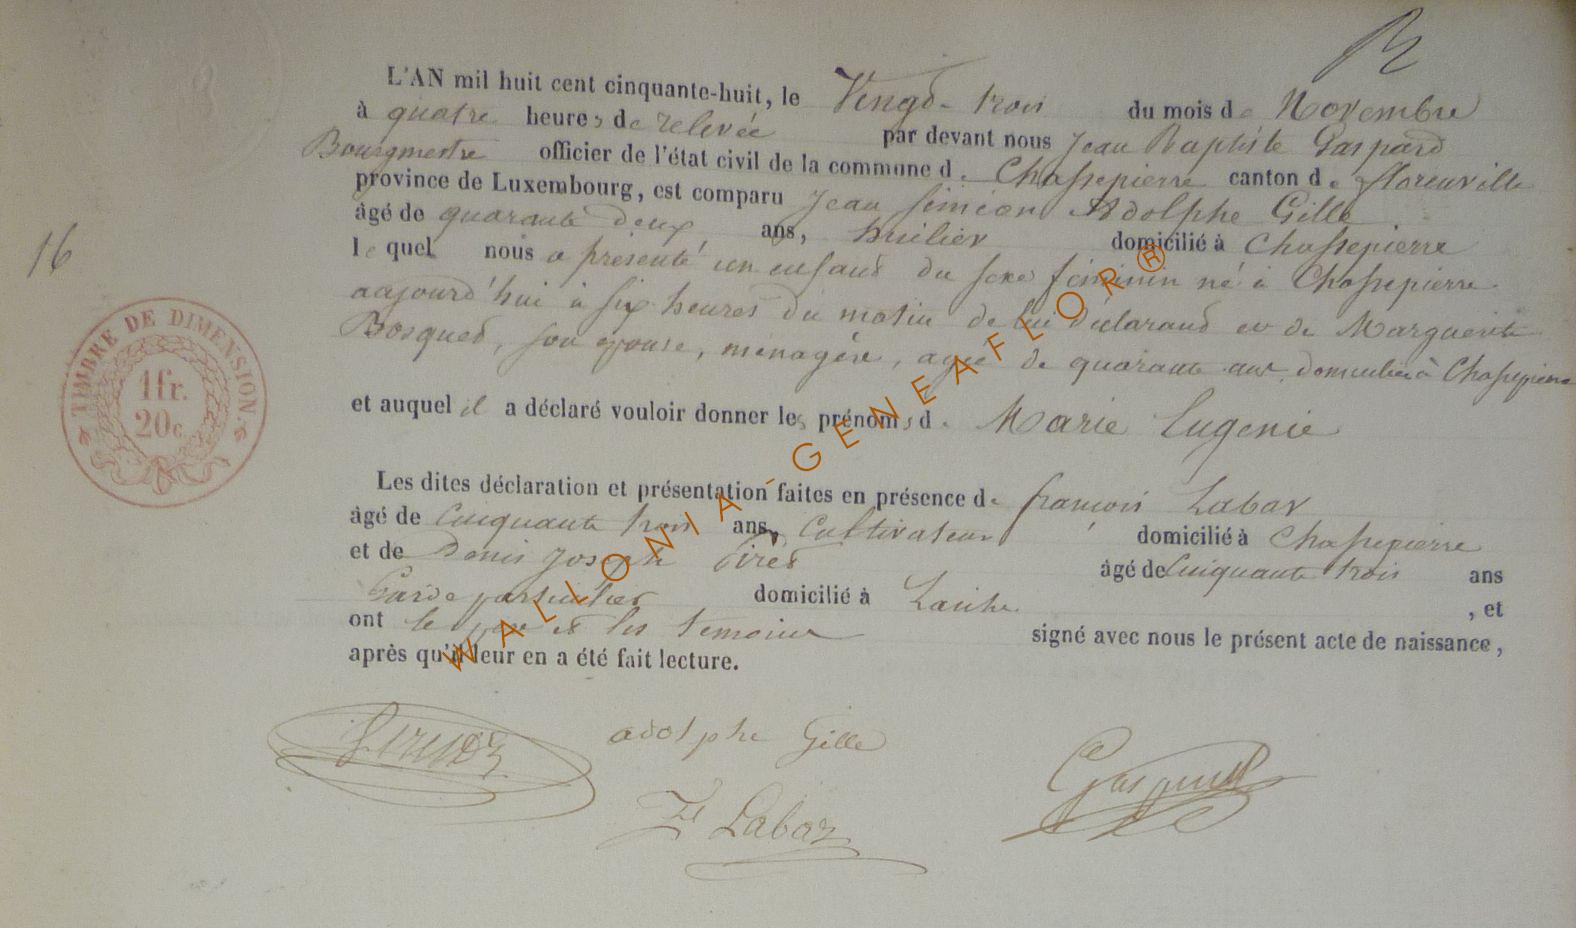 L'AN mil huit cent cinquante-huit, le Vingt-trois du mois de Novembre
à quatre heures de relevée par devant nous Jean Baptiste Gaspard
Bourgmestre officier de l'état civil de la commune de Chassepierre canton de florenville
province de Luxembourg, est comparu Jean Siméon Adolphe Gille
âgé de quarante deux ans, huilier domicilié à Chassepierre
lequel nous a présenté un enfant du sexe féminin né à Chassepierre
aujourd'hui à six heures du matin de lui déclarant et de Marguerite
Bosquet, son épouse, ménagère, agée de quarante ans domiciliée à Chassepierre
et auquel il a déclaré vouloir donner les prénoms de Marie Eugenie
Les dites déclaration et présentation faites en présence de françois Labar
âgé de Cinquante trois ans, Cultivateur domicilié à Chassepierre
et de Denis Joseph âgé de Cinquante trois ans
Garde particulier domicilié à Laiche , et
ont le père et les témoins signé avec nous le présent acte de naissance,
après qu'il leur en a été fait lecture.
16
TIMBRE DE DIMENSION.
1fr.
20c.
adolphe Gille
F Labar
Gaspard
WALLONIA-GENEAFLOR®